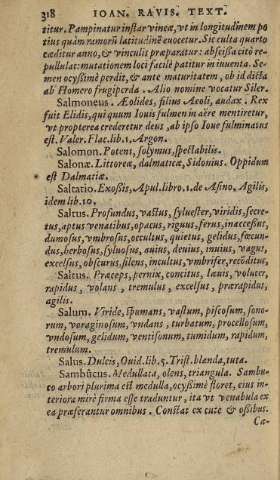 318 IOAN. RAVIS. TEXT.
titur. Pampinatur instar vineæ, vt in longitudinem po
tius quàm ramorũ latitudinẽ euocetur. Sic culta quarto
cæditur anno, & vinculis præparatur: abscissa citò re-
pullulat: mutationem loci facilè patitur in iuuenta. Se-
men ocyssimè perdit, & ante maturitatem, ob id dicta
ab Homero frugiperda. Alio nomine vocatur Siler.
Salmoneus. Æolides, filius Aeoli, audax. Rex
fuit Elidis, qui quum Iouis fulmen in aëre mentiretur,
vt propterea crederetur deus, ab ipso Ioue fulminatus
est. Valer. Flac. lib. 1. Argon.
Salomon. Potens, solynus, spectabilis.
Salonæ. Littoreæ, dalmaticæ, Sidonius. Oppidum
est Dalmatiæ.
Saltatio. Exossis, Apul. libro. 1. de Asino, Agilis,
idem lib. 10.
Saltus. Profundus, vastus, syluester, viridis, secre-
tus, aptus venatibus, opacus, riguus, ferus, inaccessus,
dumosus, vmbrosus, occultus, quietus, gelidus, fœcun-
dus, herbosus, syluosus, auius, deuius, inuius, vagus,
excelsus, obscurus, silens, incultus, vmbrifer, recōditus,
Saltus. Præceps, pernix, concitus, leuis, volucer,
rapidus, volans, tremulus, excelsus, prærapidus,
agilis.
Salum. Viride, spumans, vastum, piscosum, sono-
rum, voraginosum, vndans, turbatum, procellosum,
vndosum, gelidum, ventisonum, tumidum, rapidum,
tremulum.
Salus. Dulcis, Ouid. lib. 5. Trist. blanda, tuta.
Sambūcus. Medullata, olens, triangula. Sambu-
co arbori plurima est medulla, ocyssimè floret, eius in-
teriora mirè firma esse traduntur, ita vt venabula ex
ea præferantur omnibus. Constat ex cute & ossibus.
Ca-